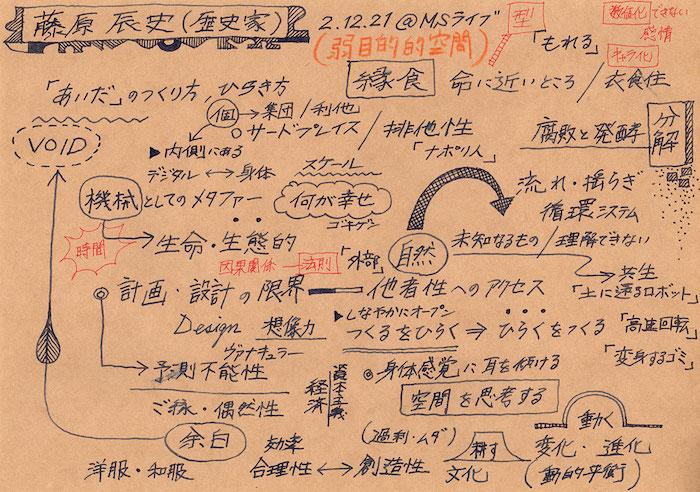 藤原辰史(歴史家)
2.12.21@MSライブ
(弱目的的空間)
型
「もれる」
数値化できない
感情
キャラ化
縁食
命に近いところ/衣食住
「あいだ」のつくり方,ひらき方
個→集団/利他
サードプレイス/排他性
「ナポリ人」
腐敗と発酵
分解
VOID
▶内側にある
デジタル↔身体
スケール
機械としてのメタファー
何が幸せ
ゴキゲン
流れ・揺らぎ
循環システム
時間
→生命・生態的
因果関係―法則
「外部」
自然
未知なるもの/理解できない
共生
「土に還るロボット」
◎計画・設計の限界―他者性へのアクセス
Design 想像力
▶しなやかにオープン
つくるをひらく⇒ひらくをつくる
「高速回転」
「変身するゴミ」
ヴァナキュラー
→予測不能性
◎身体感覚に耳を傾ける
資本主義
経済
空間を思考する
ご縁・偶然性
余白
効率
(過剰・ムダ)
耕す
動く
洋服・和服
合理性↔創造性
文化
変化・進化
(動的平衡)